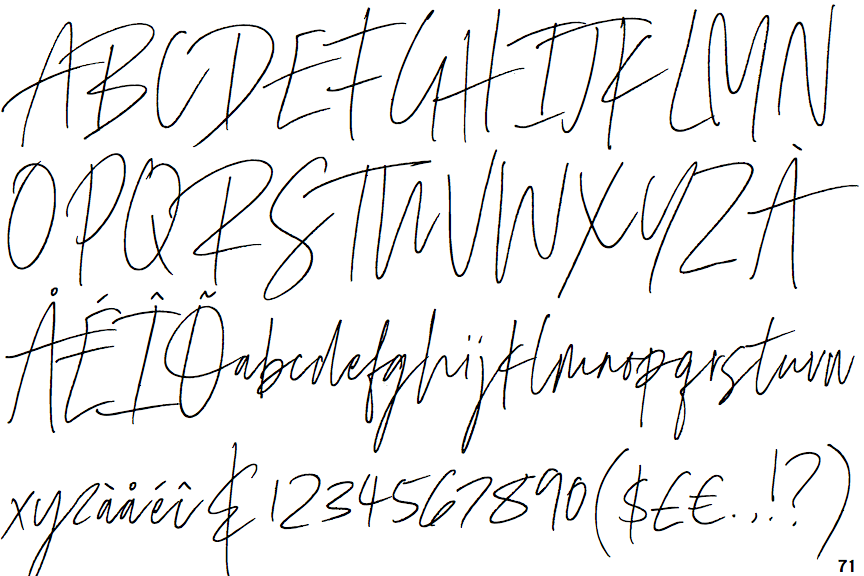 ABCDEFGHIJKLMN
OPQRSTUVWXYZÀ
ÅÉÎÕabcdefghijklmnopqrstuvw
xyzàåéî&1234567890($£€.,!?)
71